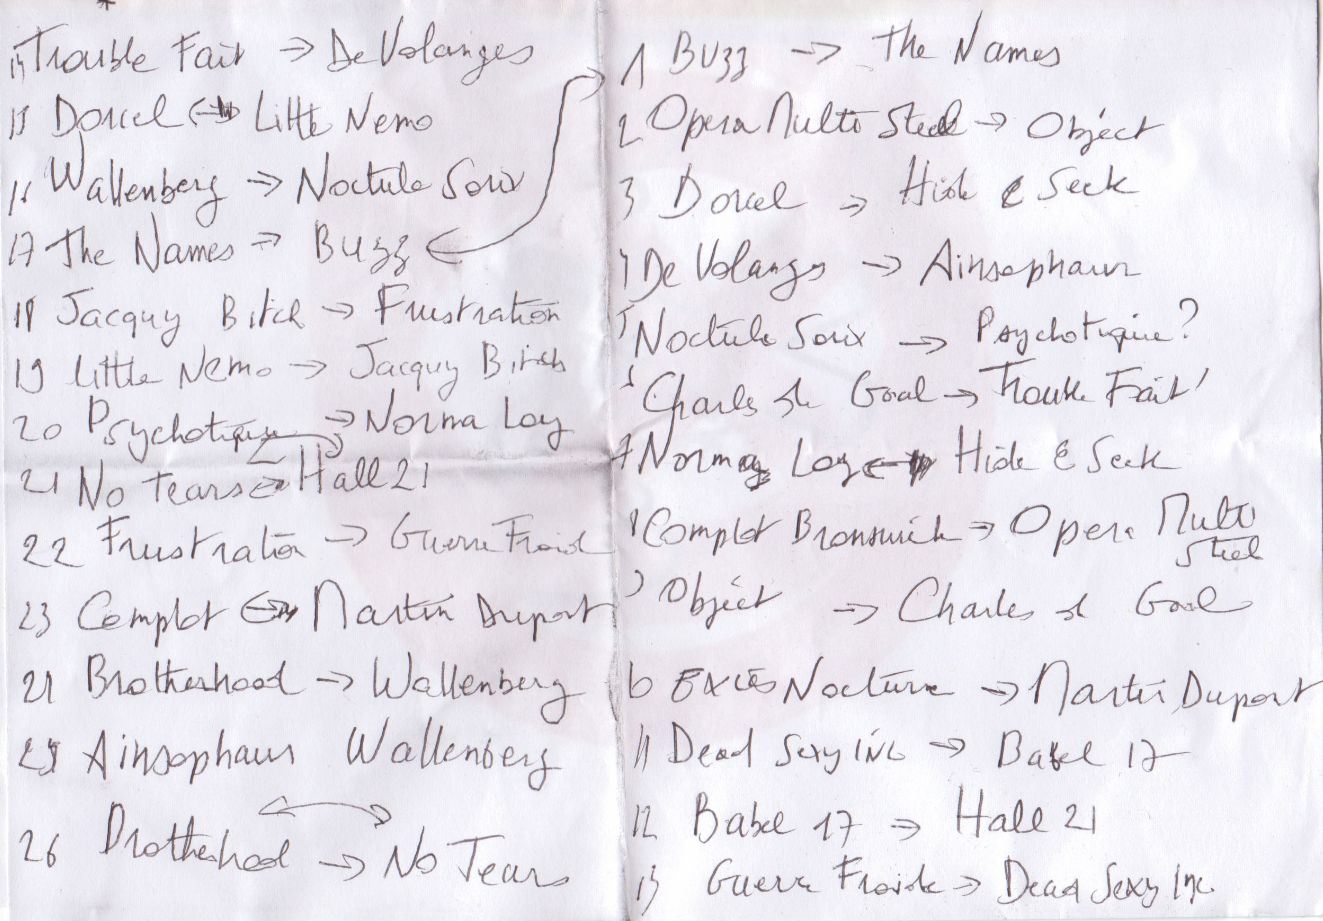 14 Trouble Fait → De Volanges
15 Dorcel ↔ Little Nemo
16 Wallenberg → Noctule Sorix
17 The Names → Buzz
18 Jacquy Bitch → Frustration
19 Little Nemo → Jacquy Bitch
20 Psychotique → Norma Loy
21 No Tears → Hall 21
22 Frustration → Guerre Froide
23 Complot ↔ Martin Dupont
24 Brotherhood → Wallenberg
25 Ainsophaur Wallenberg
26 Brotherhood → No Tears
1 Buzz → The Names
2 Opera Multi Steel → Object
3 Dorcel → Hide & Seek
4 De Volangs → Ainsophaur
5 Noctule Sorix → Psychotique?
6 Charles de Goal → Trouble Fait
7 Norma Loy ↔ Hide & Seek
8 Complot Bronswick → Opera Multi
Steel
9 Objéct → Charles de Goal
10 Excès Nocturne → Martin Dupont
11 Dead Sexy Inc → Babel 17
12 Babel 17 → Hall 21
13 Guerre Froide → Dead Sexy Inc.